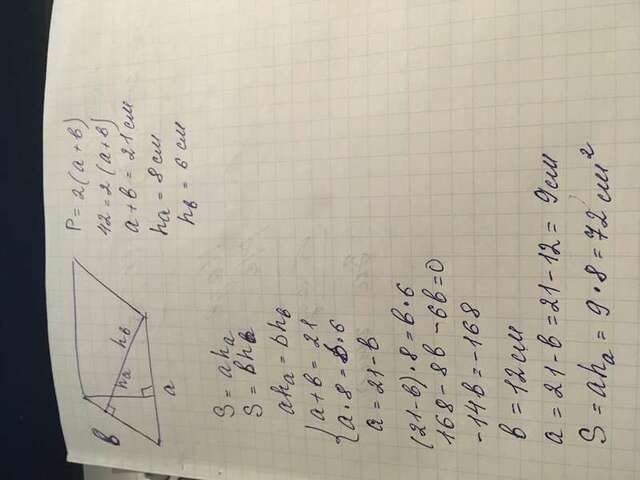 P = 2(a+в)
42 = 2(a+в)
a+в = 21 см
ha = 8 см
hв = 6 см
в
ha
hв
a
S = aha
S = вhв
aha = вhв
{a+в = 21
a·8 = в·6
a = 21-в
(21-в)·8 = в·6
168-8в-6в=0
-14в = -168
в = 12 см
a = 21-в = 21-12 = 9 см
S = aha = 9·8 = 72 см²